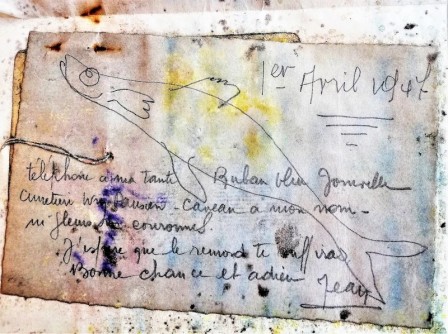 1er Avril 1947
téléphone à ma tante Ruban bleu Joinville
à mon nom -
ni fleurs ni couronnes.
J'espère que le remord te
Bonne chance et adieu
Jean